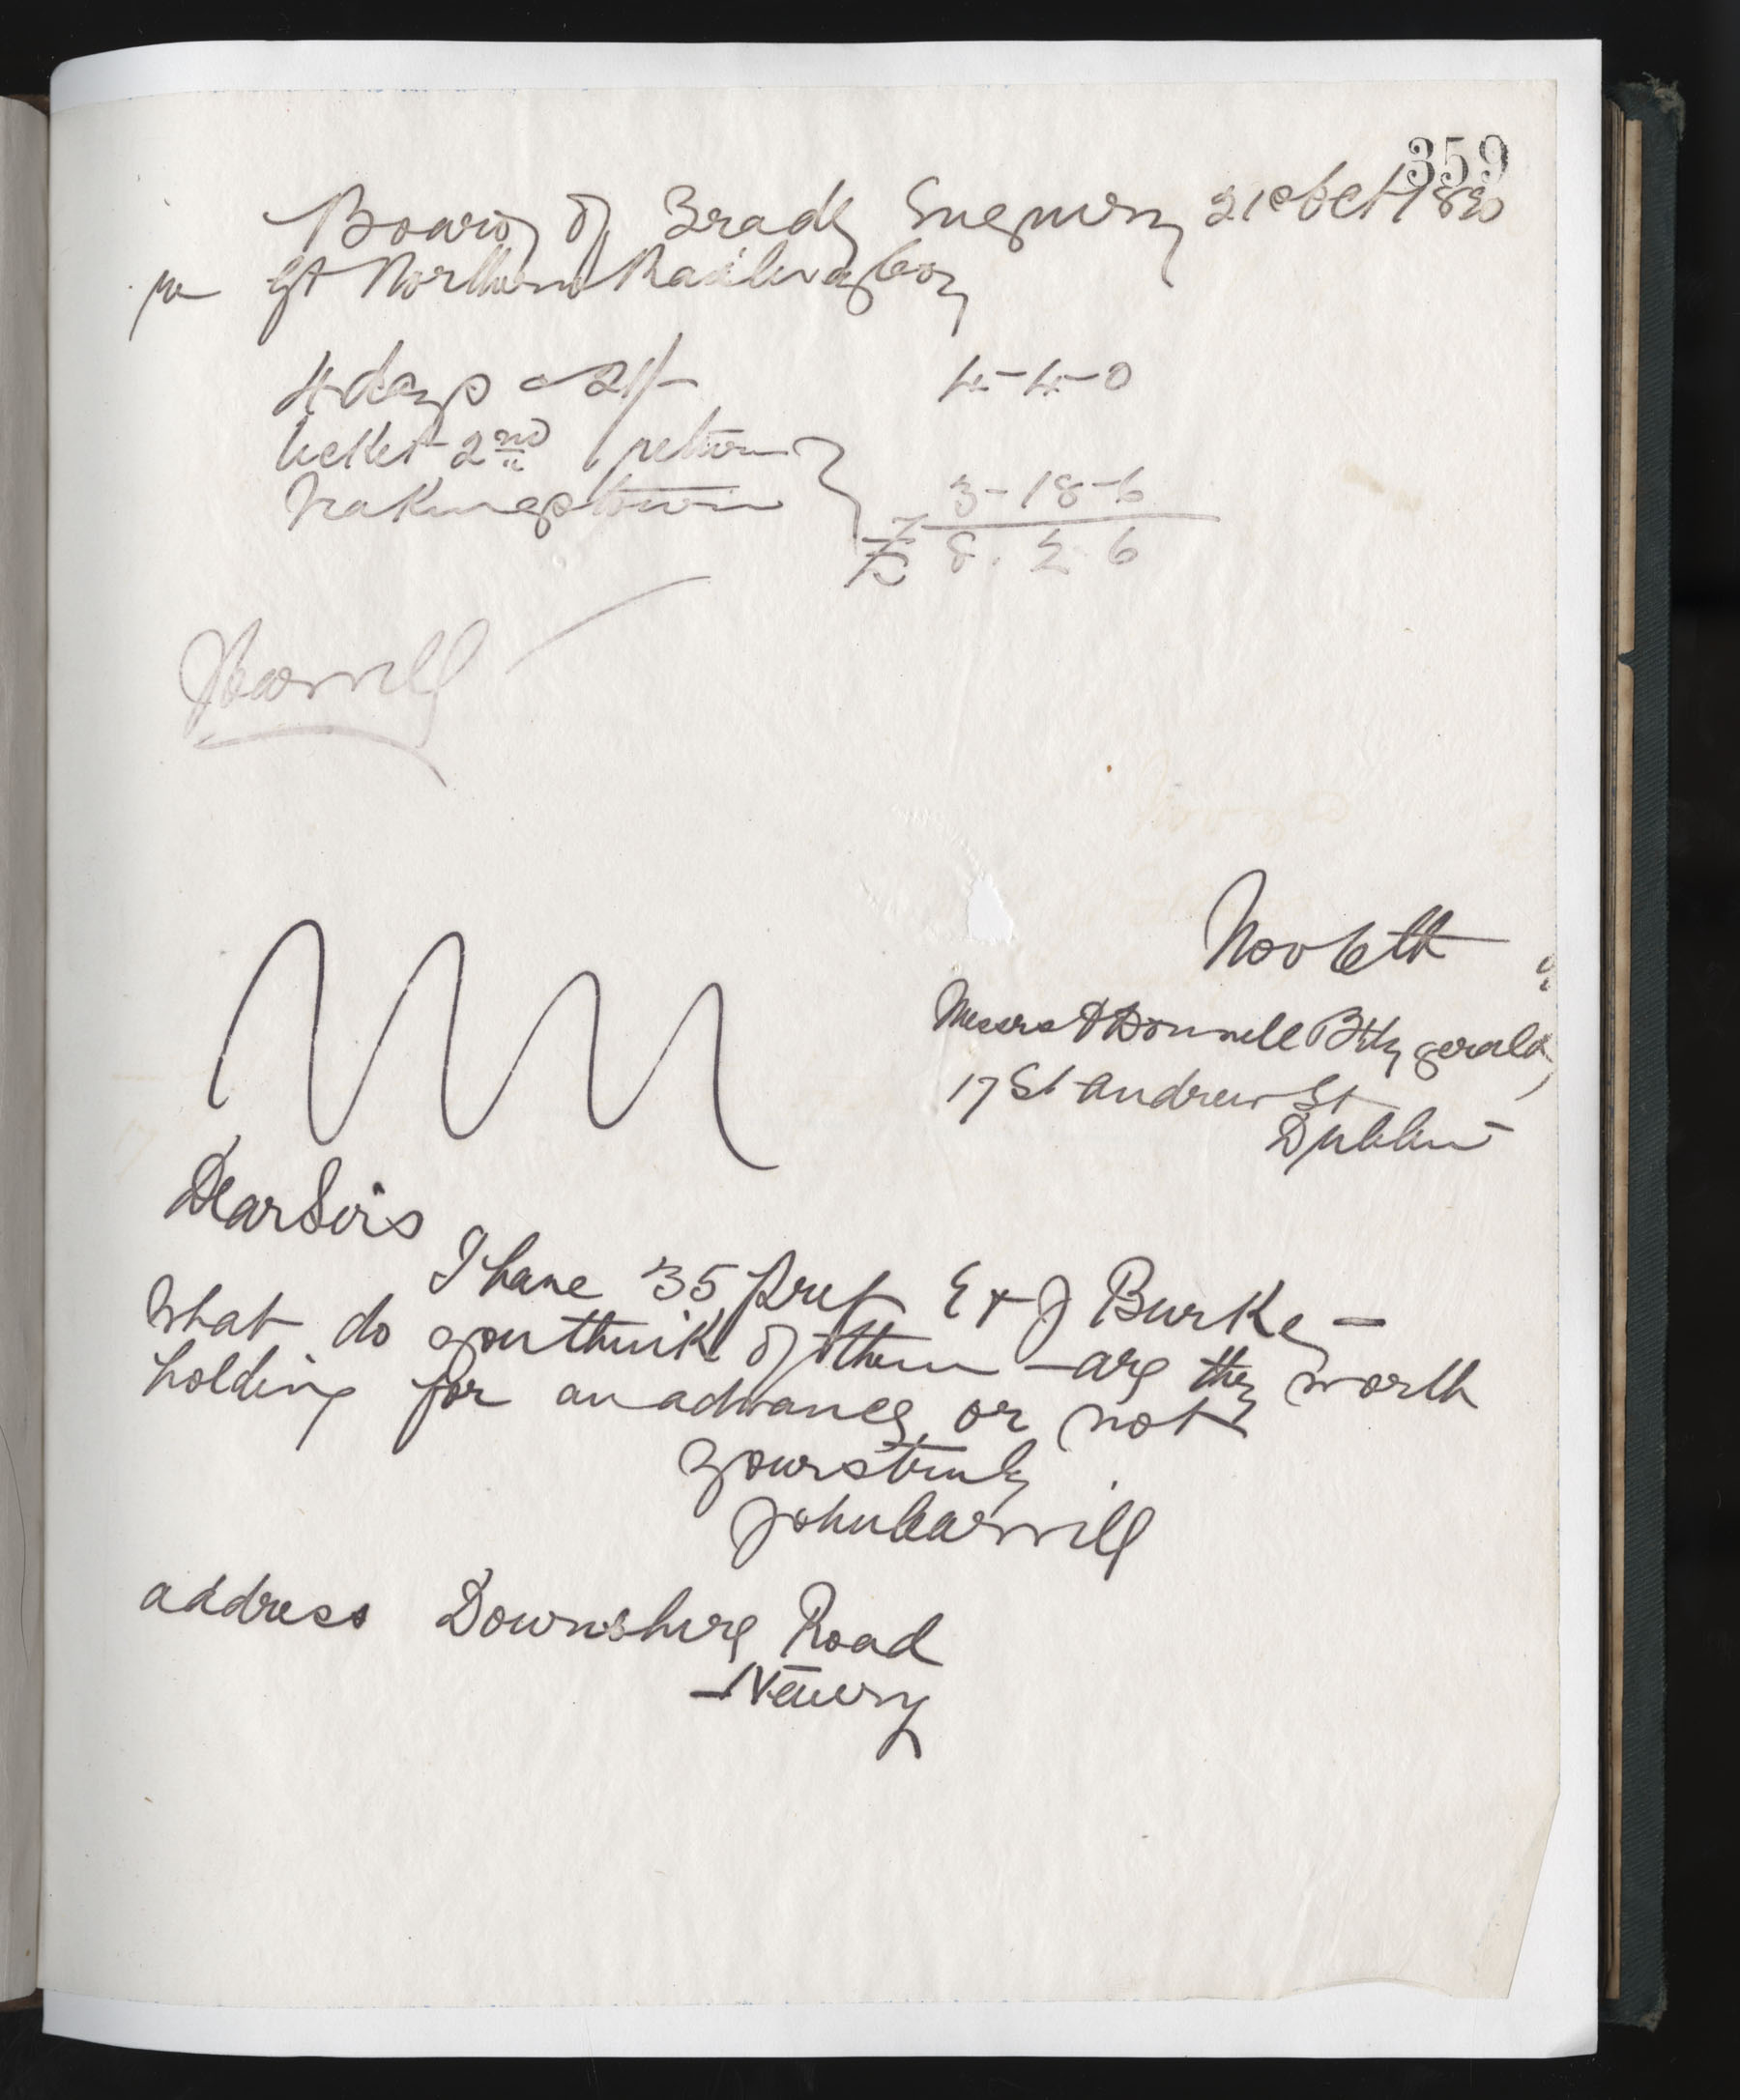 359
Board of Trade Enquiry 21st Oct 1890
re Gt Northern Railway Coy
4 days a 21/- 4-4-0
ticket 2nd return
via Kingstown 3-18-6
£ 8. 2. 6
JCarvill
Nov 6th
Messrs O'Donnell & Fitzgerald
17 St Andrew St
Dublin
Dear Sirs
I have 35 Pref E & J Burke –
What do you think of them – are they worth
holding for an advance or not
Yours truly
John Carvill
address Downshire Road
Newry